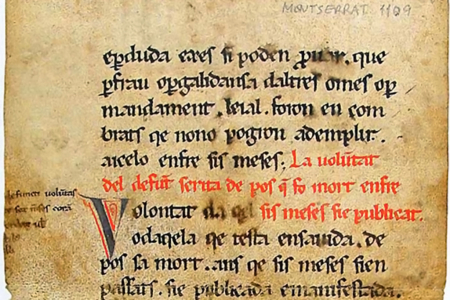 MONTSERRAT 1109
eꝑduda eres si poden ꝓuar. que
ꝑ frau oꝑ galiadansa daltres omes oꝑ
mandament. leial. foron en com
brats qe no no pogron ademplir.
aicelo enfre sis meses. La uolũtat
del defũt scrita de pos q̃ fo mort enfre
Volontat sis meses sie publicat.
odaqela qe testa ensauida. de
pos sa mort. ans qe sis meses sien
passats. sie publicada emanifestada.